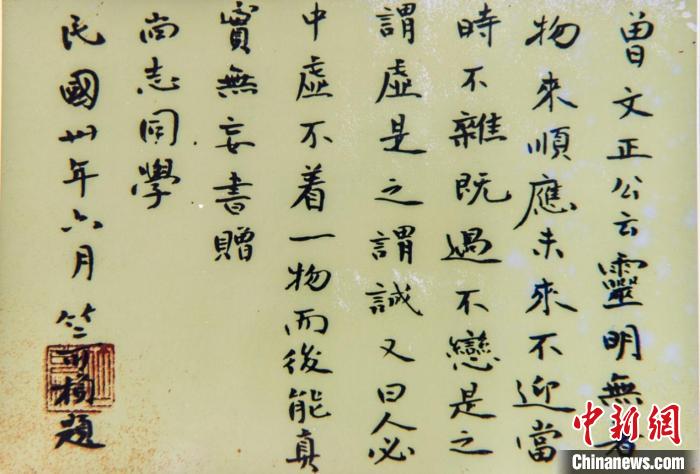 曾文正公云靈明無着
物來順應未來不迎當
時不雜既過不戀是之
謂虛是之謂誠又曰人必
中虛不着一物而後能真
實無妄書贈
尚志同學
民國卅年六月 竺可楨題
中新網
Chinanews.com